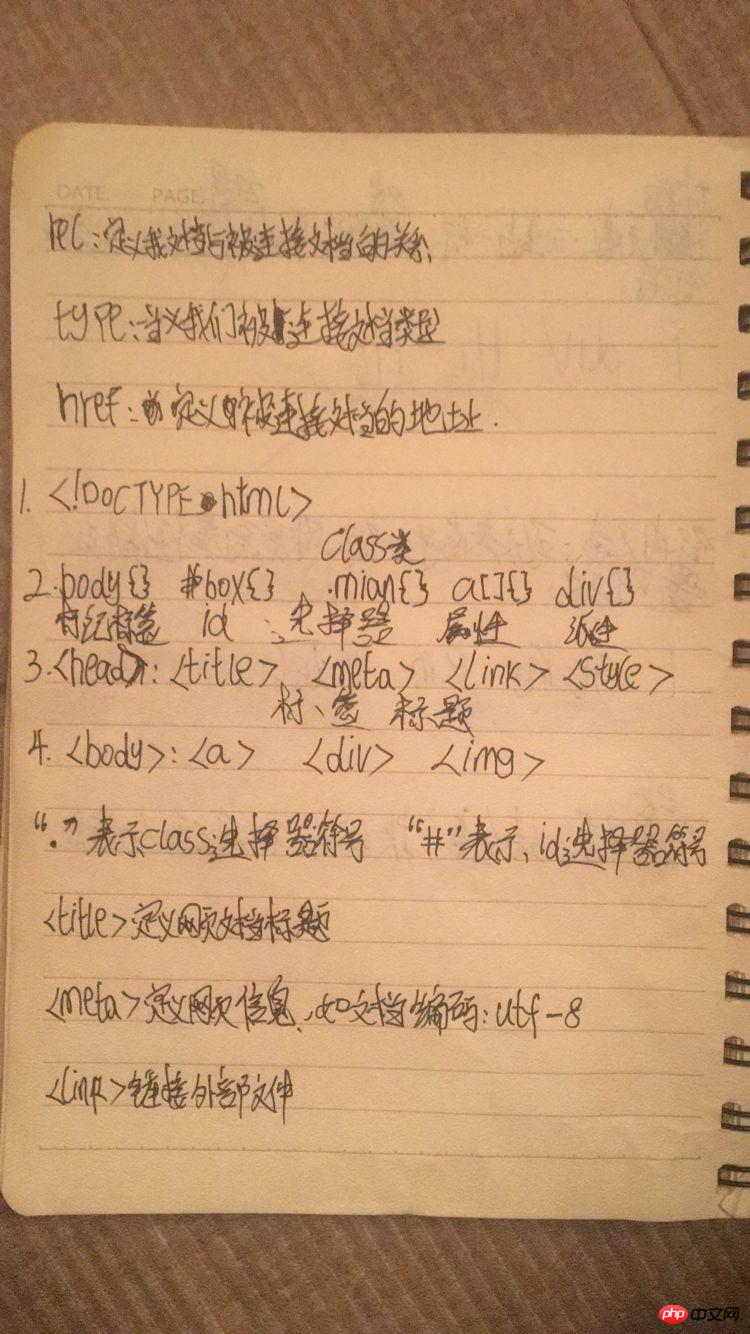 DATE. PAGE.
rel:定义我文档与被连接文档的关系
type:定义我们被连接文档类型
href:定义被连接文档的地址.
1. <!DOCTYPE html>
class类
2. body{} #box{} .mian{} a[]{} div{}
标签 id 选择器 属性 派生
3. <head>: <title> <meta> <link> <style>
标、签 标题
4. <body>: <a> <div> <img>
“.”表示class选择器符号 “#”表示id选择器符号
<title>定义网页文档标题
<meta>定义网页信息,如文档编码:utf-8
<link>链接外部文件
php中文网